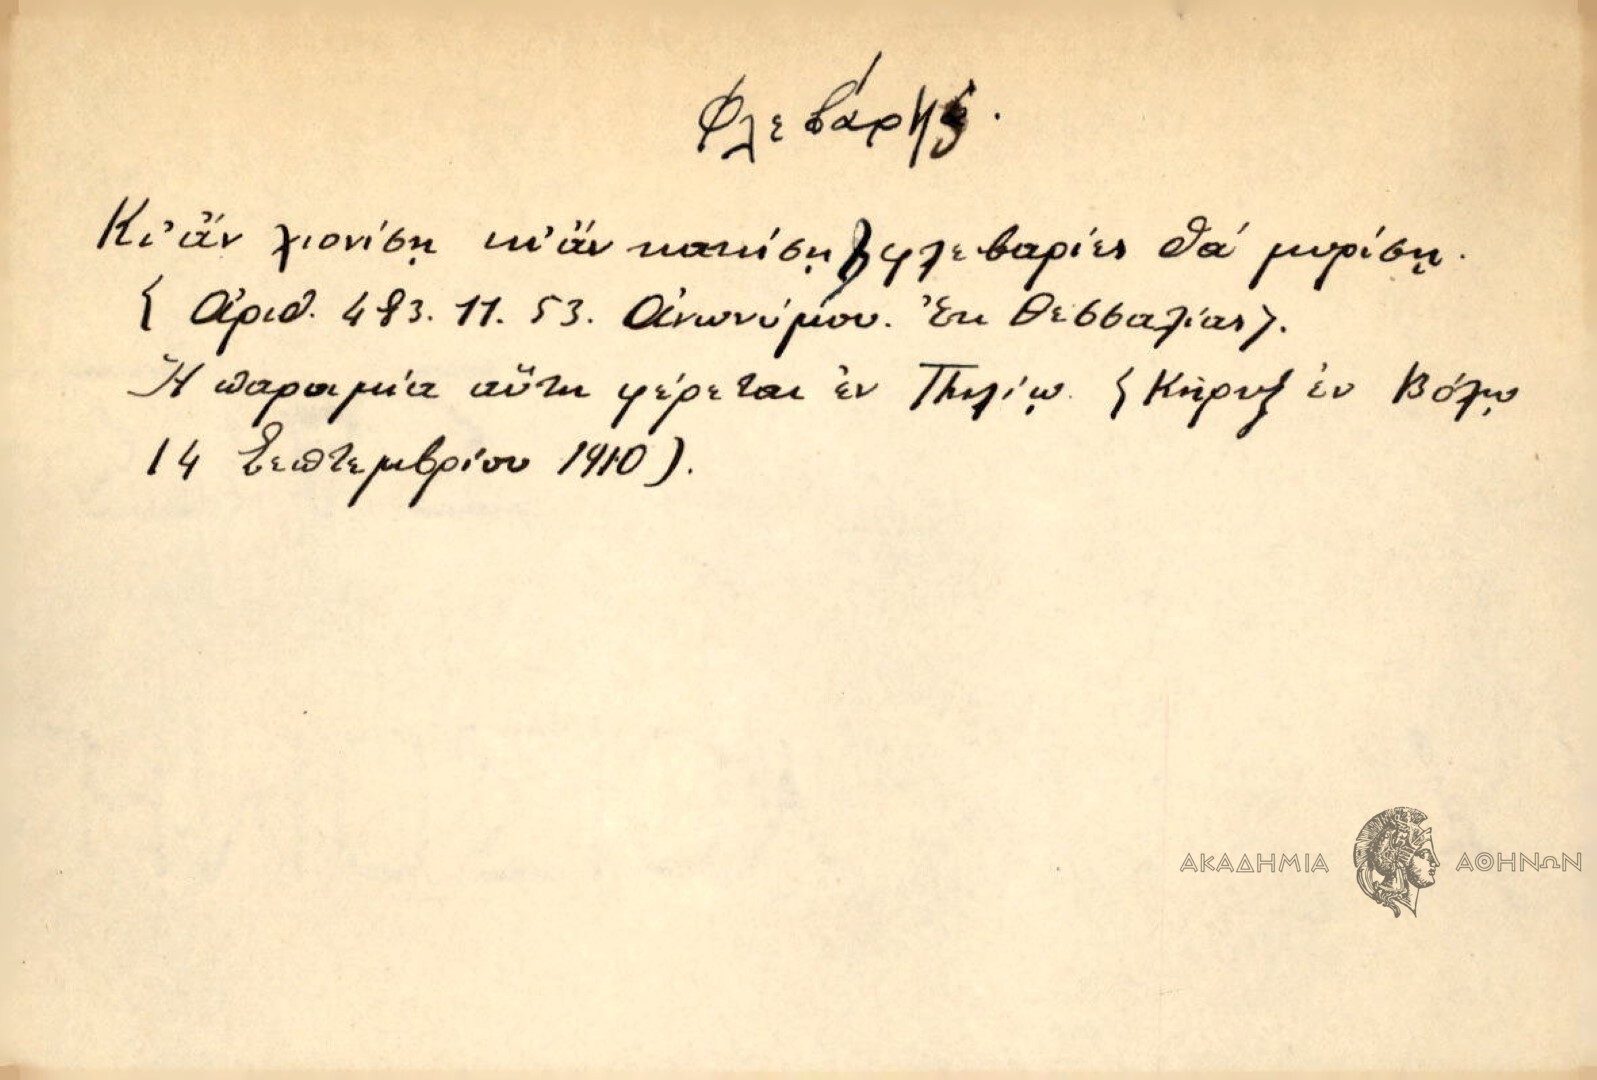 Φλεβάρης.
Κι' ἄν χιονίσῃ κι' ἄν κακίσῃ φλεβαριές θά μυρίσῃ.
(Ἀριθ. 483. 11. 53. Ἀνωνύμου. Ἐκ Θεσσαλίας).
Ἡ παροιμία αὕτη φέρεται ἐν Πηλίῳ. (Κήρυξ ἐν Βόλῳ
14 Σεπτεμβρίου 1910).
ΑΚΑΔΗΜΙΑ ΑΘΗΝΩΝ